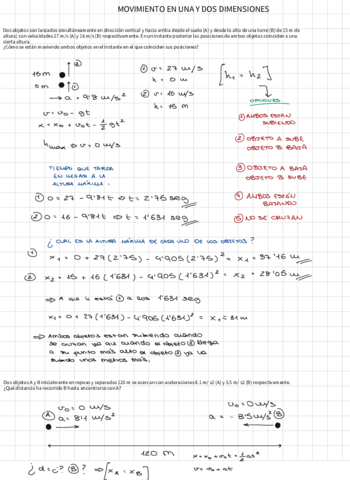 MOVIMIENTO EN UNA Y DOS DIMENSIONES
Dos objetos son lanzados simultáneamente en dirección vertical y hacia arriba desde el suelo (A) y desde lo alto de una torre (B) de 15 m de
altura) con velocidades 27 m/s (A) y 16 m/s (B) respectivamente. En un instante posterior las posiciones de ambos objetos coinciden a una
cierta altura.
¿Cómo se están moviendo ambos objetos en el instante en el que coinciden sus posiciones?
15m ②
0m ①
→ a = 9'8 m/s²
v = v₀ - gt
x = x₀ + v₀t - 1/2 gt²
hmax ⇒ v = 0 m/s
① v = 27 m/s
h = 0 m
② v = 16 m/s
h = 15 m
[h₁ = h₂]
OPCIONES
① AMBOS ESTÁN
SUBIENDO
② OBJETO A SUBE
OBJETO B BAJA
③ OBJETO A BAJA
OBJETO B SUBE
④ AMBOS ESTÁN
BAJANDO
⑤ NO SE CRUZAN
TIEMPO QUE TARDA
EN LLEGAR A LA
ALTURA MÁXIMA:
① 0 = 27 - 9'81t ⇒ t = 2'75 seg
② 0 = 16 - 9'81t ⇒ t = 1'631 seg
¿ CUAL ES LA ALTURA MÁXIMA DE CADA UNO DE LOS OBJETOS ?
① x₁ = 0 + 27(2'75) - 4'905(2'75)² = x₁ = 37'16 m
② x₂ = 15 + 16(1'631) - 4'905(1'631)² = x₂ = 28'05 m
⇒ A que h está ① a los 1'631 seg
x₁ = 0 + 27(1'631) - 4'905(1'631)² = x₁ = 31 m
⇒ Ambos objetos están subiendo cuando
se cruzan ya que cuando el objeto ② llega
a su punto más alto el objeto ① ya ha
subido unos metros más.
Dos objetos A y B inicialmente en reposo y separados 120 m se acercan con aceleraciones 8.1 m/s2 (A) y 8.5 m/s2 (B) respectivamente.
¿Qué distancia ha recorrido B hasta encontrarse con A?
Ⓐ v₀ = 0 m/s
a = 8'1 m/s²
v₀ = 0 m/s
a = - 8'5 m/s² Ⓑ
120 m
x = x₀ + v₀t + 1/2 at²
v = v₀ + at
¿ d = c? Ⓑ ? ⇒ [xA = xB]